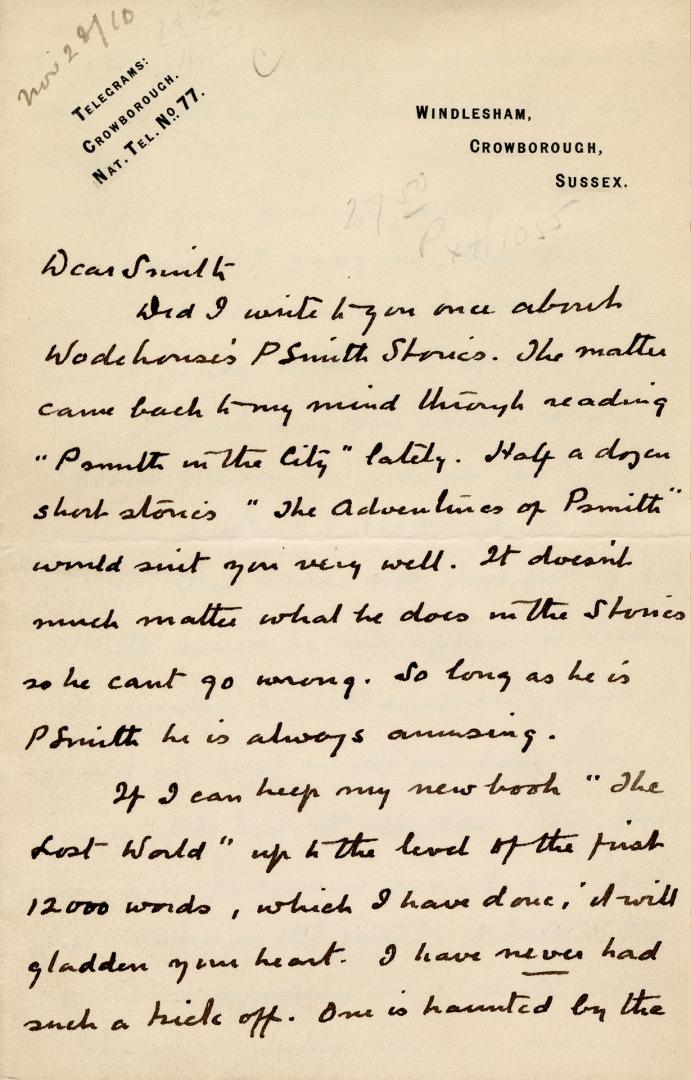 Nov 28/10
TELEGRAMS:
CROWBOROUGH.
NAT. TEL. No. 77.
WINDLESHAM,
CROWBOROUGH,
SUSSEX.
C
27 50
Dear Smith
Did I write to you once about
Wodehouse's PSmith Stories. The matter
came back to my mind through reading
"Psmith in the City" lately. Half a dozen
short stories "The Adventures of Psmith"
would suit you very well. It doesn't
much matter what he does in the Stories
so he cant go wrong. So long as he is
PSmith he is always amusing.
If I can keep my new book "The
Lost World" up to the level of the first
12000 words, which I have done, it will
gladden your heart. I have never had
such a kick off. One is haunted by the